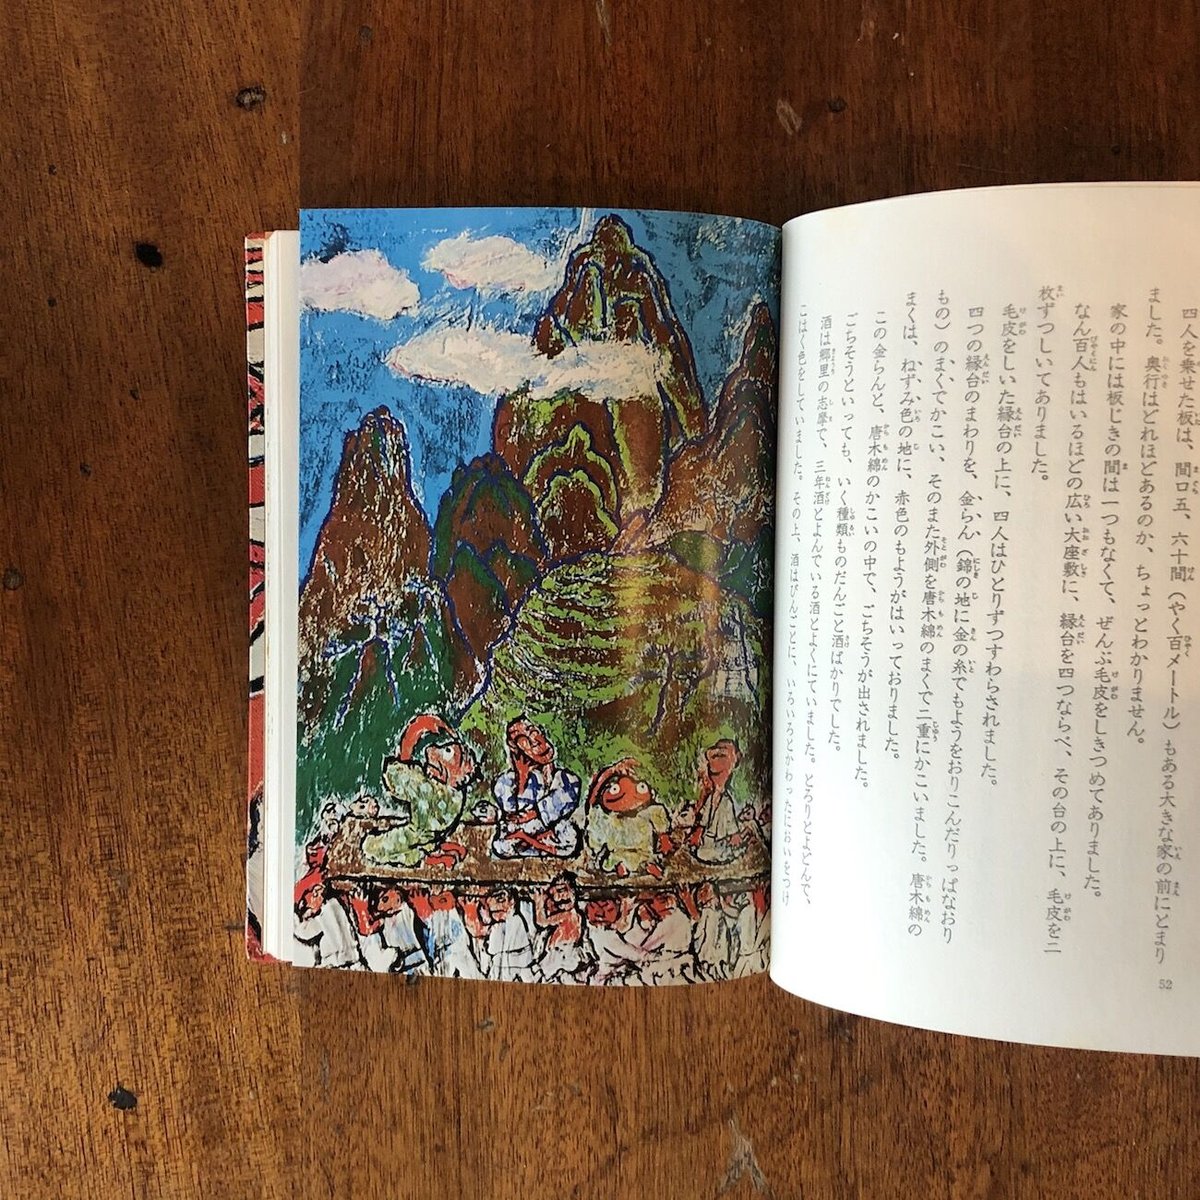 四人を乗せた板は、間口五、六十間（やく百メートル）もある大きな家の前にとまり
ました。奥行はどれほどあるのか、ちょっとわかりません。
家の中には板じきの間は一つもなくて、ぜんぶ毛皮をしきつめてありました。
なん百人もはいるほどの広い大座敷に、縁台を四つならべ、その台の上に、毛皮を二
枚ずつしいてありました。
毛皮をしいた縁台の上に、四人はひとりずつすわらされました。
四つの縁台のまわりを、金らん（錦の地に金の糸でもようをおりこんだりっぱなおり
もの）のまくでかこい、そのまた外側を唐木綿のまくで二重にかこいました。唐木綿の
まくは、ねずみ色の地に、赤色のもようがはいっておりました。
この金らんと、唐木綿のかこいの中で、ごちそうが出されました。
ごちそうといっても、いく種類ものだんごと酒ばかりでした。
酒は郷里の志摩で、三年酒とよんでいる酒とよくにていました。とろりとよどんで、
こはく色をしていました。その上、酒はびんごとに、いろいろとかわったにおいをつけ
52